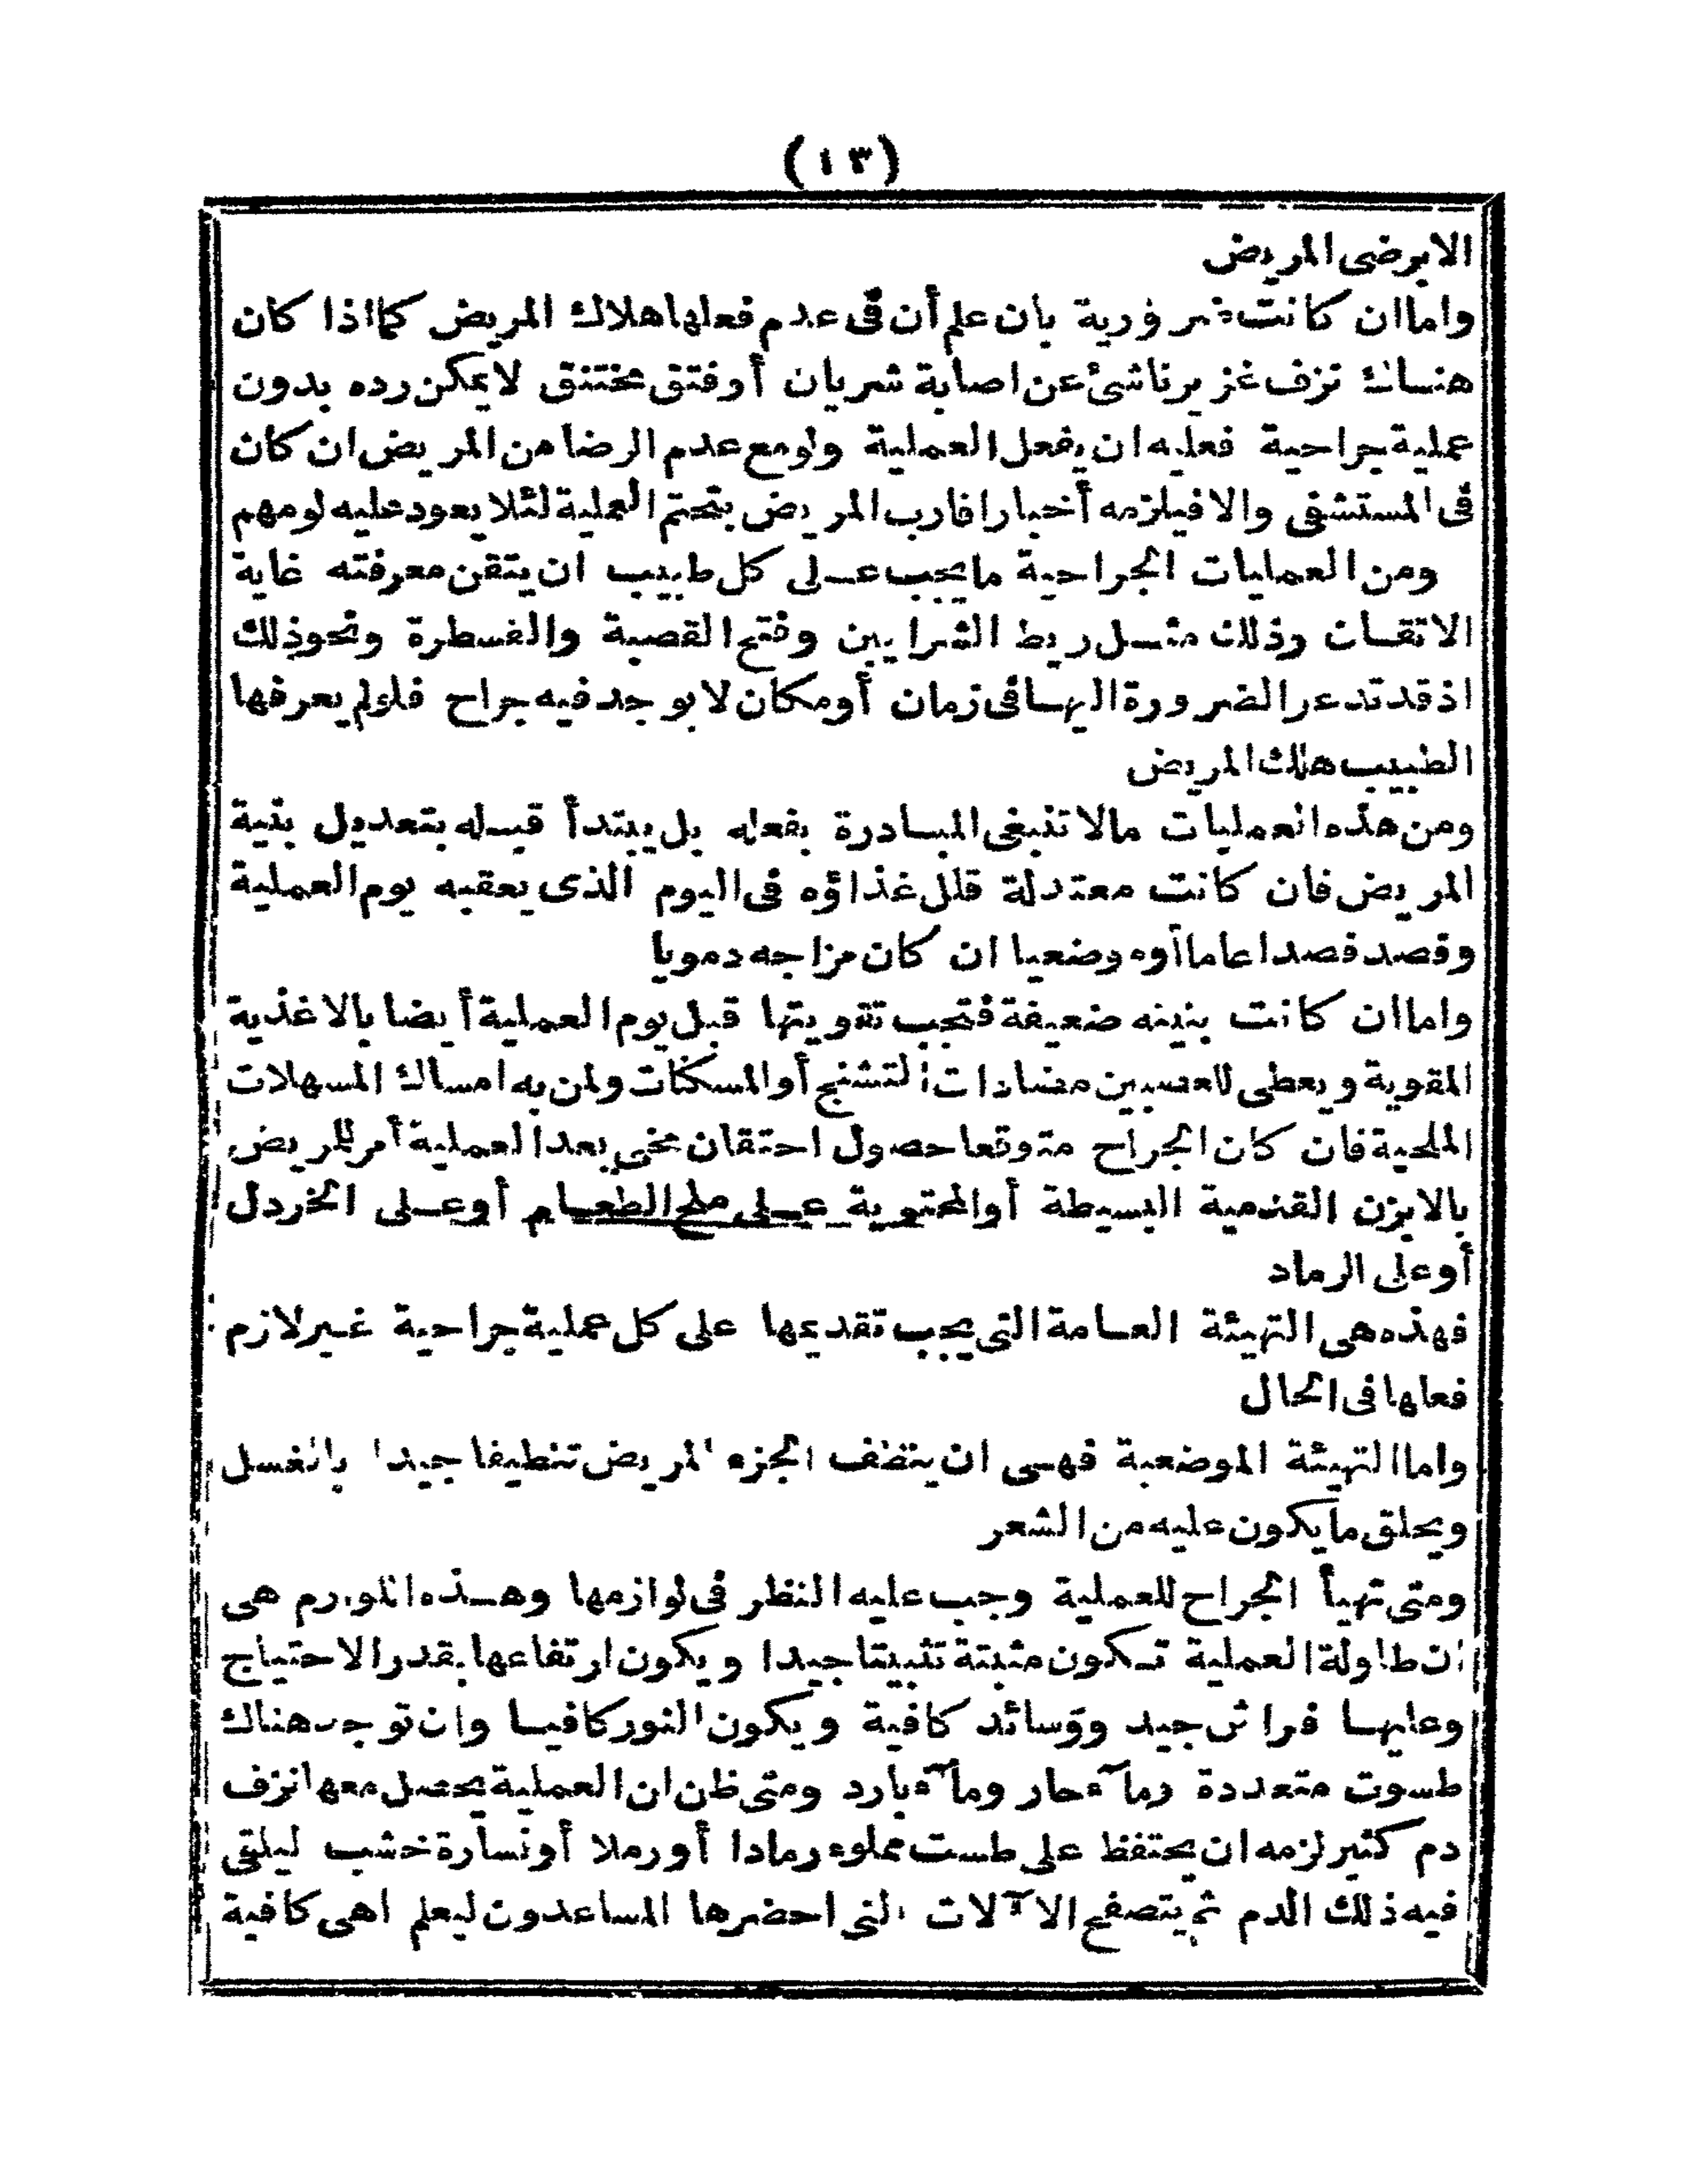 (١٣)
الا برضى المريض
واما ان كانت ضرورية بان علم أن فى عدم فعلها هلاك المريض كما اذا كان
هناك نزف غزير ناشئ عن اصابة شريان أو فتق مختنق لا يمكن رده بدون
عملية جراحية فعليه ان يفعل العملية ولو مع عدم الرضا من المريض ان كان
فى المستشفى والا فيلزمه أخبار اقارب المريض بتحتم العملية لئلا يعود عليه لومهم
ومن العمليات الجراحية ما يجب على كل طبيب ان يتقن معرفته غاية
الاتقان وذلك مثل ربط الشرايين وفتح القصبة والقسطرة ونحو ذلك
اذ قد تدعو الضرورة اليها فى زمان أو مكان لا يوجد فيه جراح فلو لم يعرفها
الطبيب هلك المريض
ومن هذه العمليات ما لا تنبغى المبادرة بفعله بل يبتدأ قبله بتعديل بنية
المريض فان كانت معتدلة قلل غذاؤه فى اليوم الذى يعقبه يوم العملية
وفصد فصدا عاما أو موضعيا ان كان مزاجه دمويا
واما ان كانت بنيته ضعيفة فتجب تقويتها قبل يوم العملية أيضا بالاغذية
المقوية ويعطى للعصبيين مضادات التشنج أو المسكنات ولمن به امساك المسهلات
الملحية فان كان الجراح متوقعا حصول احتقان مخى بعد العملية أمر للمريض
بالابزن القدمية البسيطة أو المحتوية على ملح الطعام أو على الخردل
أو على الرماد
فهذه هى التهيئة العامة التى يجب تقديمها على كل عملية جراحية غير لازم
فعلها فى الحال
واما التهيئة الموضعية فهى ان ينظف الجزء المريض تنظيفا جيدا بالغسل
ويحلق ما يكون عليه من الشعر
ومتى تهيأ الجراح للعملية وجب عليه النظر فى لوازمها وهذه اللوازم هى
ان طاولة العملية تكون مثبتة تثبيتا جيدا ويكون ارتفاعها بقدر الاحتياج
وعليها فراش جيد ووسائد كافية ويكون النور كافيا وان توجد هناك
طسوت متعددة ومآء حار ومآء بارد ومتى ظن ان العملية يحصل معها نزف
دم كثير لزمه ان يحتفظ على طست مملوء رمادا أو رملا أو نسارة خشب ليلقى
فيه ذلك الدم ثم يتصفح الآلات التى احضرها المساعدون ليعلم اهى كافية